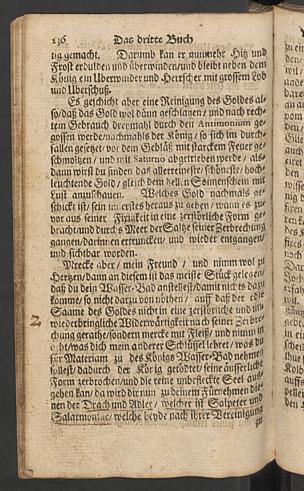 136 Das dritte Buch
tig gemacht. Darumb kan er nunmehr Hitz und
Frost erdulden und überwinden / und bleibet neben dem
Könige ein Uberwinder und Herrscher mit grossem Lob
und Uberschuß.
Es geschicht aber eine Reinigung des Goldes al-
so / daß das Gold wol dünn geschlagen / und nach rech-
tem Gebrauch dreymahl durch den Antimonium ge-
gossen werde / nachmahls der König / so sich im durch-
fallen gesetzt / vor dem Gebläß mit starckem Feuer ge-
schmoltzen / und mit Saturno abgetrieben werde / als-
dann wirst du finden das allerreineste / schöneste / hoch-
leuchtende Gold / gleich dem hellen Sonnenschein mit
Lust anzuschauen. Welches Gold nachmals ge-
schickt ist / sein innerstes heraus zu geben / wann es zu-
vor aus seiner Fixigkeit in eine zerstörliche Form ge-
bracht / und durchs Meer der Saltze seiner Zerbrechung
gangen / darinnen ertruncken / und wieder entgangen /
und sichtbar worden.
Mercke aber / mein Freund / und nimm wol zu
Hertzen / dann an diesem ist das meiste Stück gelegen /
daß du dein Wasser-Bad anstellest / damit nichts dazu
komme / so nicht darzu von nöthen / auff daß der edle
Saame des Goldes nicht in eine zerstörliche und un-
wiederbringliche Widerwärtigkeit nach seiner Zerbre-
chung gerathe / sondern mercke mit Fleiß / und nimm in
acht / was dich mein anderer Schlüssel lehret / was du
für Materiam zu des Königs Wasser-Bad nehmen
sollest / dadurch der König getödtet / seine äusserliche
Form zerbrochen / und die reine unbefleckte Seel aus-
gehen kan / da wird dir nun zu deinem Fürnehmen die-
nen der Drach und Adler / welcher ist Salpeter und
Salarmoniac, welche beyde nach ihrer Vereinigung
zu
2